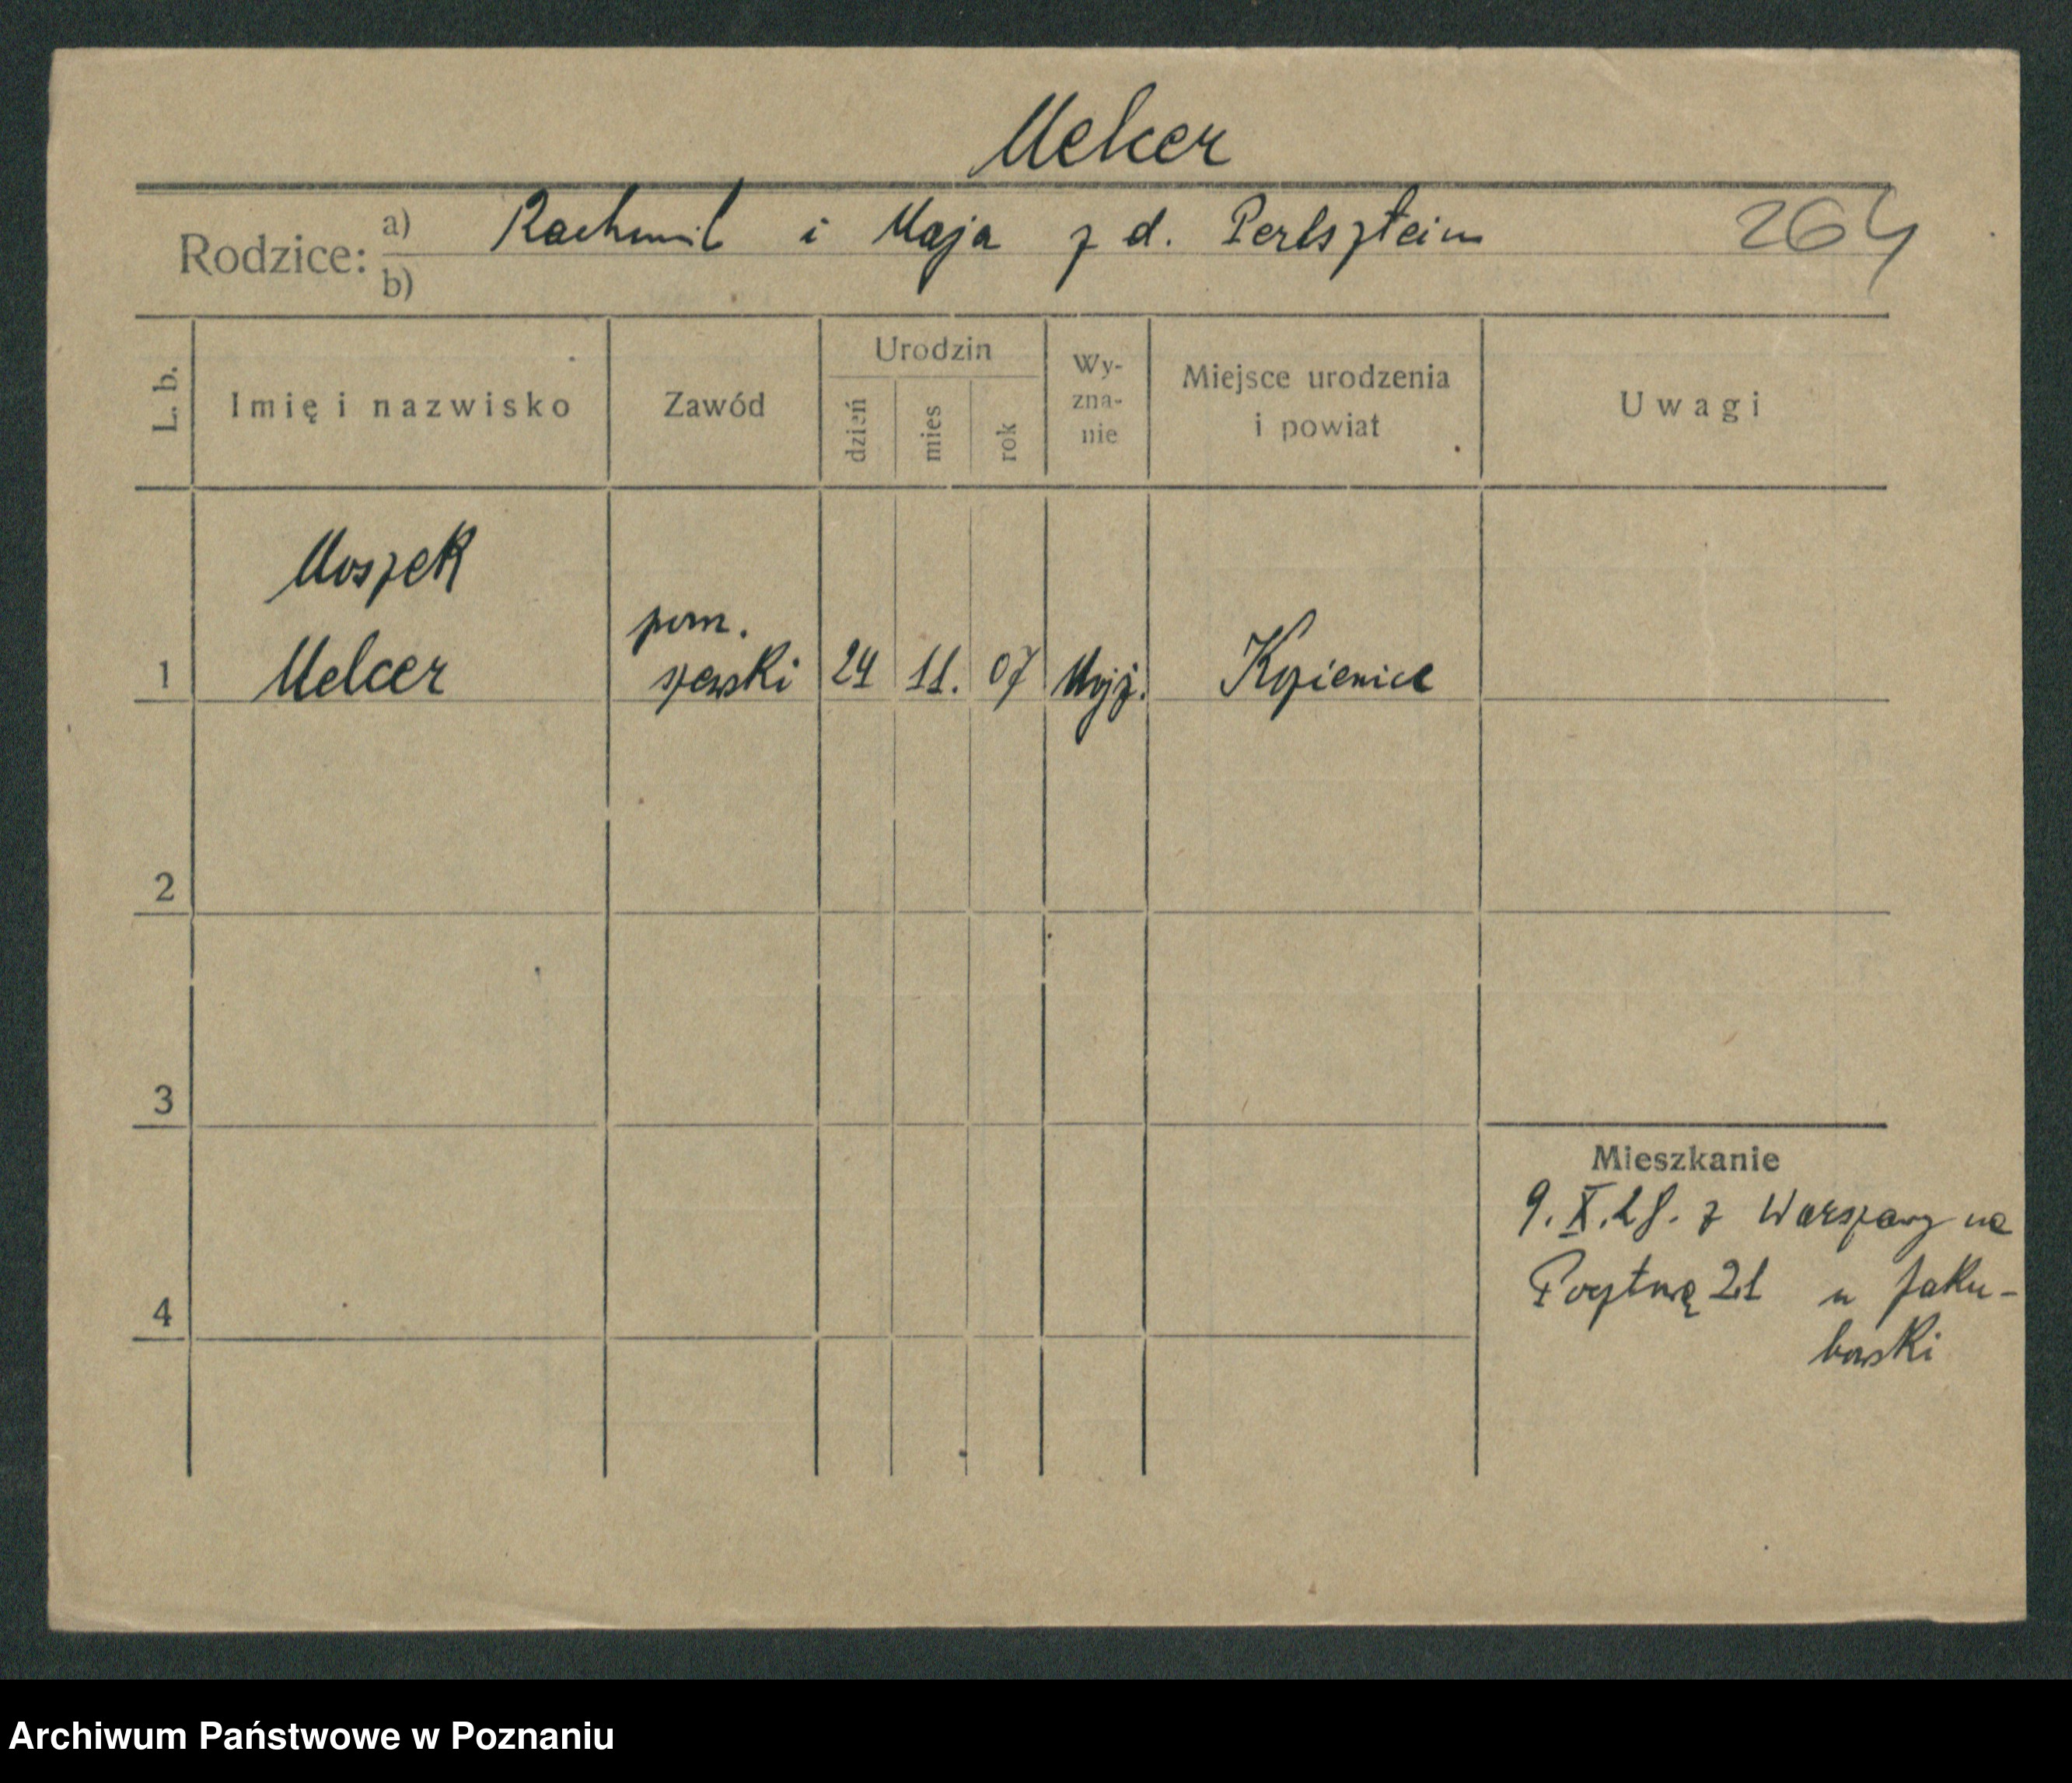 Melcer
Rodzice: a) Rachmil i Maja z d. Perlsztein 264
b)
L. b. Imię i nazwisko Zawód Urodzin dzień mies rok Wy-zna-nie Miejsce urodzenia i powiat Uwagi
Moszek
pom.
1 Melcer szewski 24 11. 07 Mojż. Kozienice
2
3
Mieszkanie
9. X. 28. z Warszawy na
Pocztową 21 u Jaku-
4
bowski
Archiwum Państwowe w Poznaniu